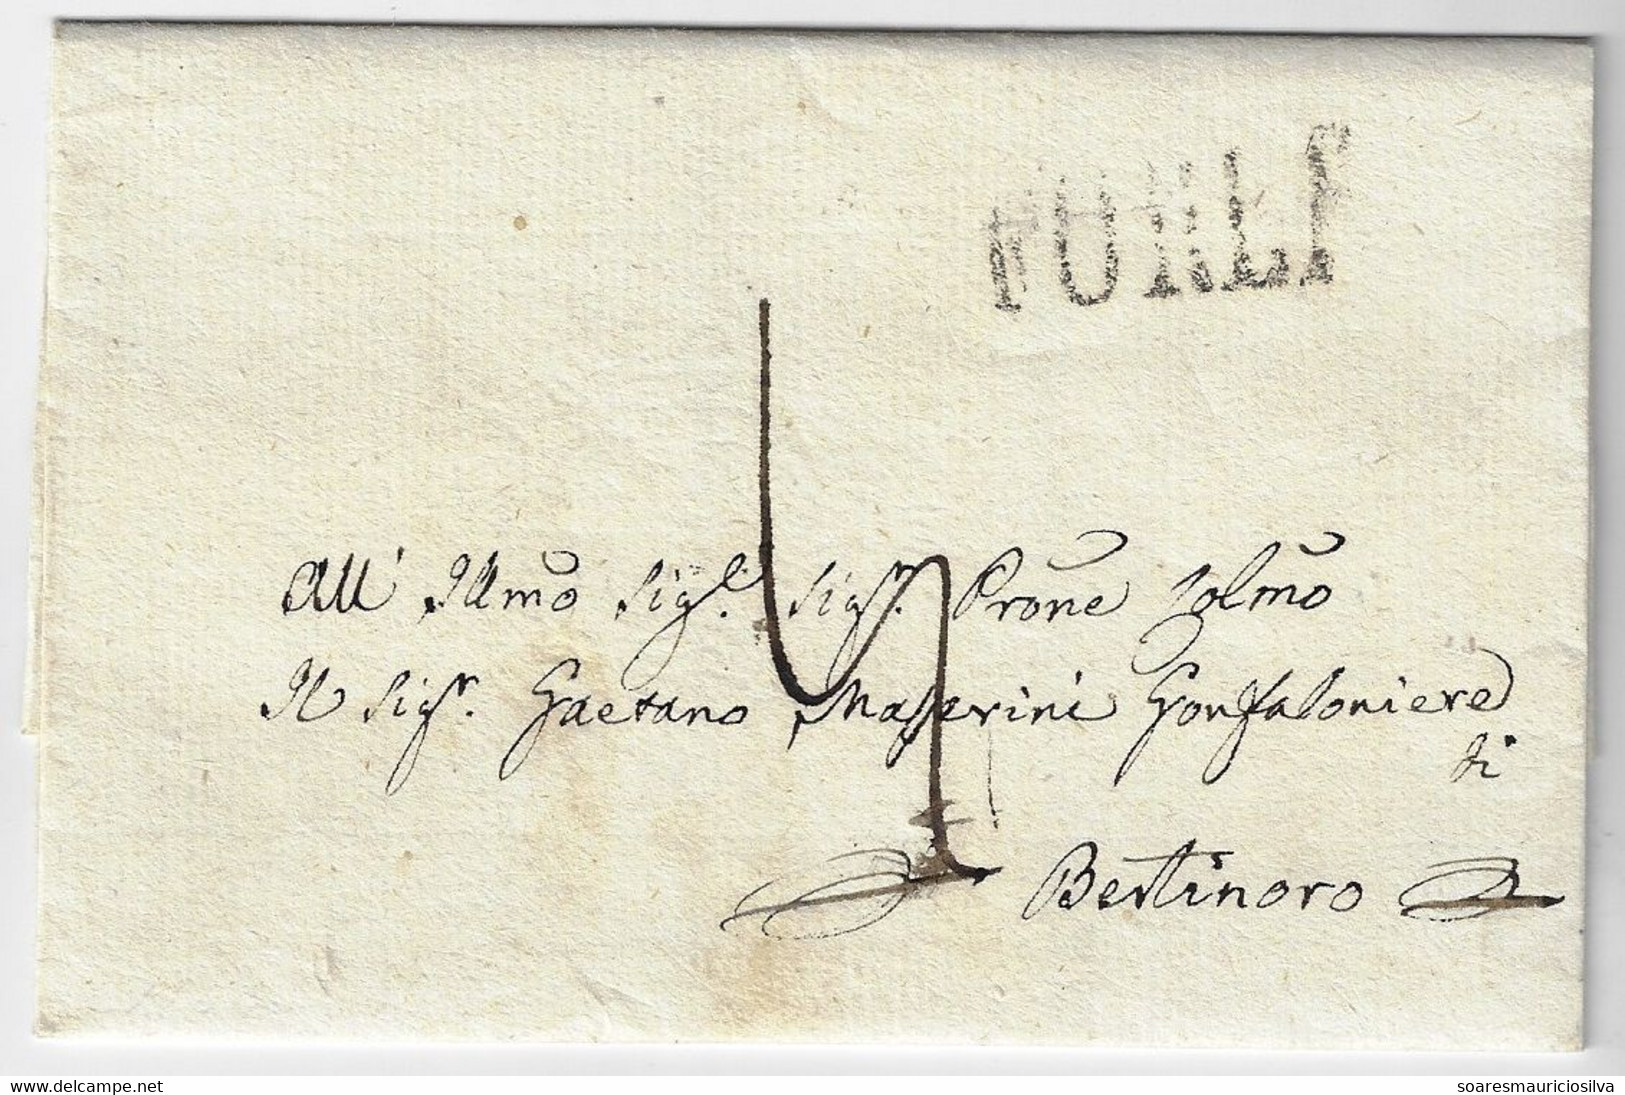 FORLI
All' Illmo Sigr. Sigr. Prone Colmo
Il Sigr. Gaetano Masserini Gonfaloniere
di
Bertinoro
delcampe.net
soaresmauriciosilva